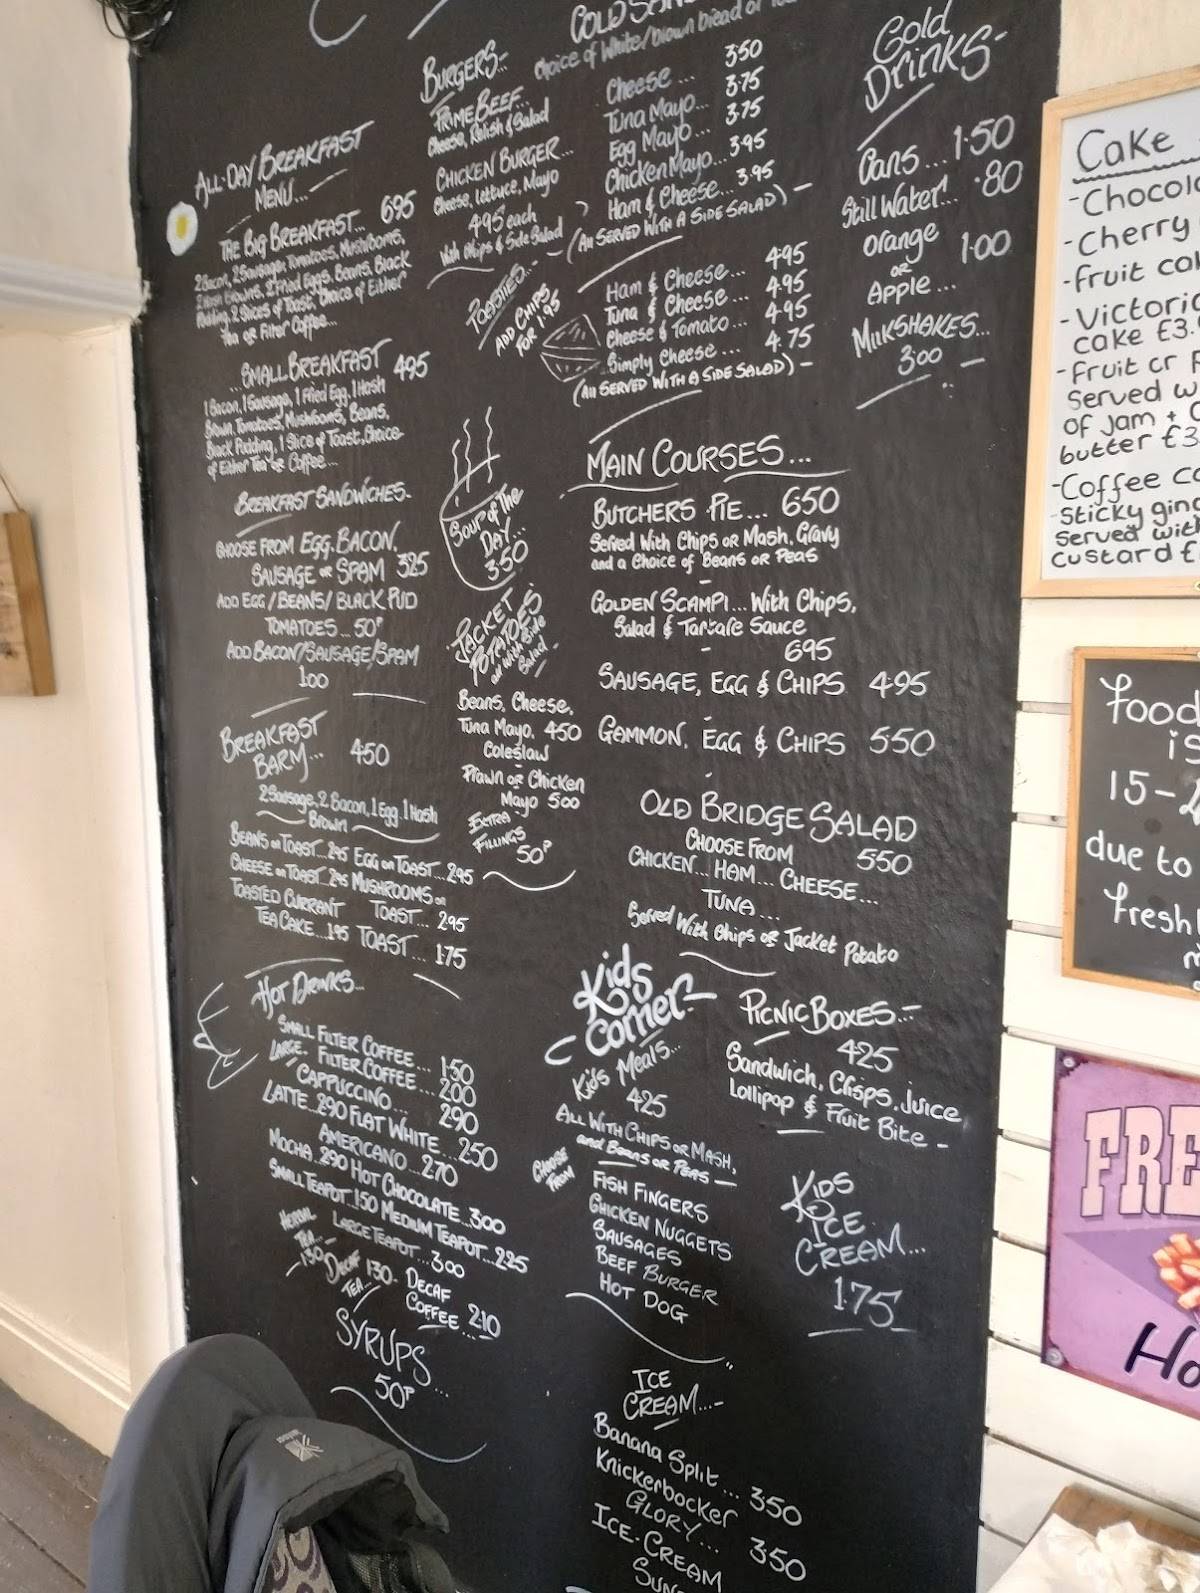 ALL-DAY BREAKFAST
MENU...
THE BIG BREAKFAST... 695
2 Bacon, 2 Sausage, Tomatoes, Mushrooms,
2 Hash Browns, 2 Fried Eggs, Beans, Black
Pudding, 2 Slices of Toast, Choice of Either
Tea or Filter Coffee...
...SMALL BREAKFAST 495
1 Bacon, 1 Sausage, 1 Fried Egg, 1 Hash
Brown, Tomatoes, Mushrooms, Beans,
Black Pudding, 1 Slice of Toast, Choice
of Either Tea or Coffee...
BREAKFAST SANDWICHES-
CHOOSE FROM EGG, BACON,
SAUSAGE OR SPAM 325
ADD EGG/BEANS/BLACK PUD
TOMATOES... 50P
ADD BACON/SAUSAGE/SPAM
100
BREAKFAST
BARM... 450
2 Sausage, 2 Bacon, 1 Egg, 1 Hash
Brown
BEANS ON TOAST...295 EGG ON TOAST...295
CHEESE ON TOAST...295 MUSHROOMS ON
TOAST... 295
TOASTED CURRANT
TEACAKE...195 TOAST... 175
HOT DRINKS...
SMALL FILTER COFFEE... 150
LARGE.. FILTER COFFEE... 200
CAPPUCCINO... 290
LATTE...290 FLAT WHITE 250
AMERICANO...270
MOCHA...290 HOT CHOCOLATE...300
SMALL TEAPOT...150 MEDIUM TEAPOT...225
LARGE TEAPOT...300
HERBAL
TEA...
130-
DECAF
TEA... 130-
DECAF
COFFEE... 210
SYRUPS
50P...
BURGERS-
PRIME BEEF...
Cheese, Relish & Salad
CHICKEN BURGER...
Cheese, Lettuce, Mayo
495 each
With Chips & Side Salad
TOASTIES...
ADD CHIPS
FOR 1.95
Soup of The
DAY...
350
JACKET
POTATOES
all with Side
Salad
Beans, Cheese,
Tuna Mayo, 450
Coleslaw
Prawn or Chicken
Mayo 500
EXTRA
FILLINGS
50P
Choice of White/brown bread or
Cheese... 350
Tuna Mayo... 375
Egg Mayo... 375
Chicken Mayo... 395
Ham & Cheese... 395
(All SERVED WITH A SIDE SALAD) -
Ham & Cheese... 495
Tuna & Cheese... 495
Cheese & Tomato... 495
Simply Cheese... 475
(All SERVED WITH A SIDE SALAD) -
MAIN COURSES...
BUTCHERS PIE... 650
Served With Chips or Mash, Gravy
and a Choice of Beans or Peas
GOLDEN SCAMPI... With Chips,
Salad & Tartare Sauce
695
SAUSAGE, EGG & CHIPS 495
GAMMON, EGG & CHIPS 550
OLD BRIDGE SALAD
CHOOSE FROM 550
CHICKEN... HAM... CHEESE...
TUNA...
Served With Chips or Jacket Potato
Kids
Corner
Kids Meals...
425
ALL WITH CHIPS OR MASH,
and Beans or Peas
CHOOSE
FROM
FISH FINGERS
CHICKEN NUGGETS
SAUSAGES
BEEF BURGER
HOT DOG
PICNIC BOXES...
425
Sandwich, Crisps, Juice
Lollipop & Fruit Bite -
KIDS
ICE
CREAM...
175
ICE
CREAM...-
Banana Split... 350
Knickerbocker
GLORY... 350
ICE-CREAM
Cold
DRINKS-
Cans... 1.50
Still Water... .80
Orange
OR 1.00
Apple...
MILKSHAKES...
300
Cake
- Chocol
- Cherry
- fruit cak
- Victoria
cake £3.
- fruit or
Served w
of jam +
butter £3
- Coffee c
Sticky ging
Served with
custard £
food
is
15-
due to
fresh
FRE
Ho